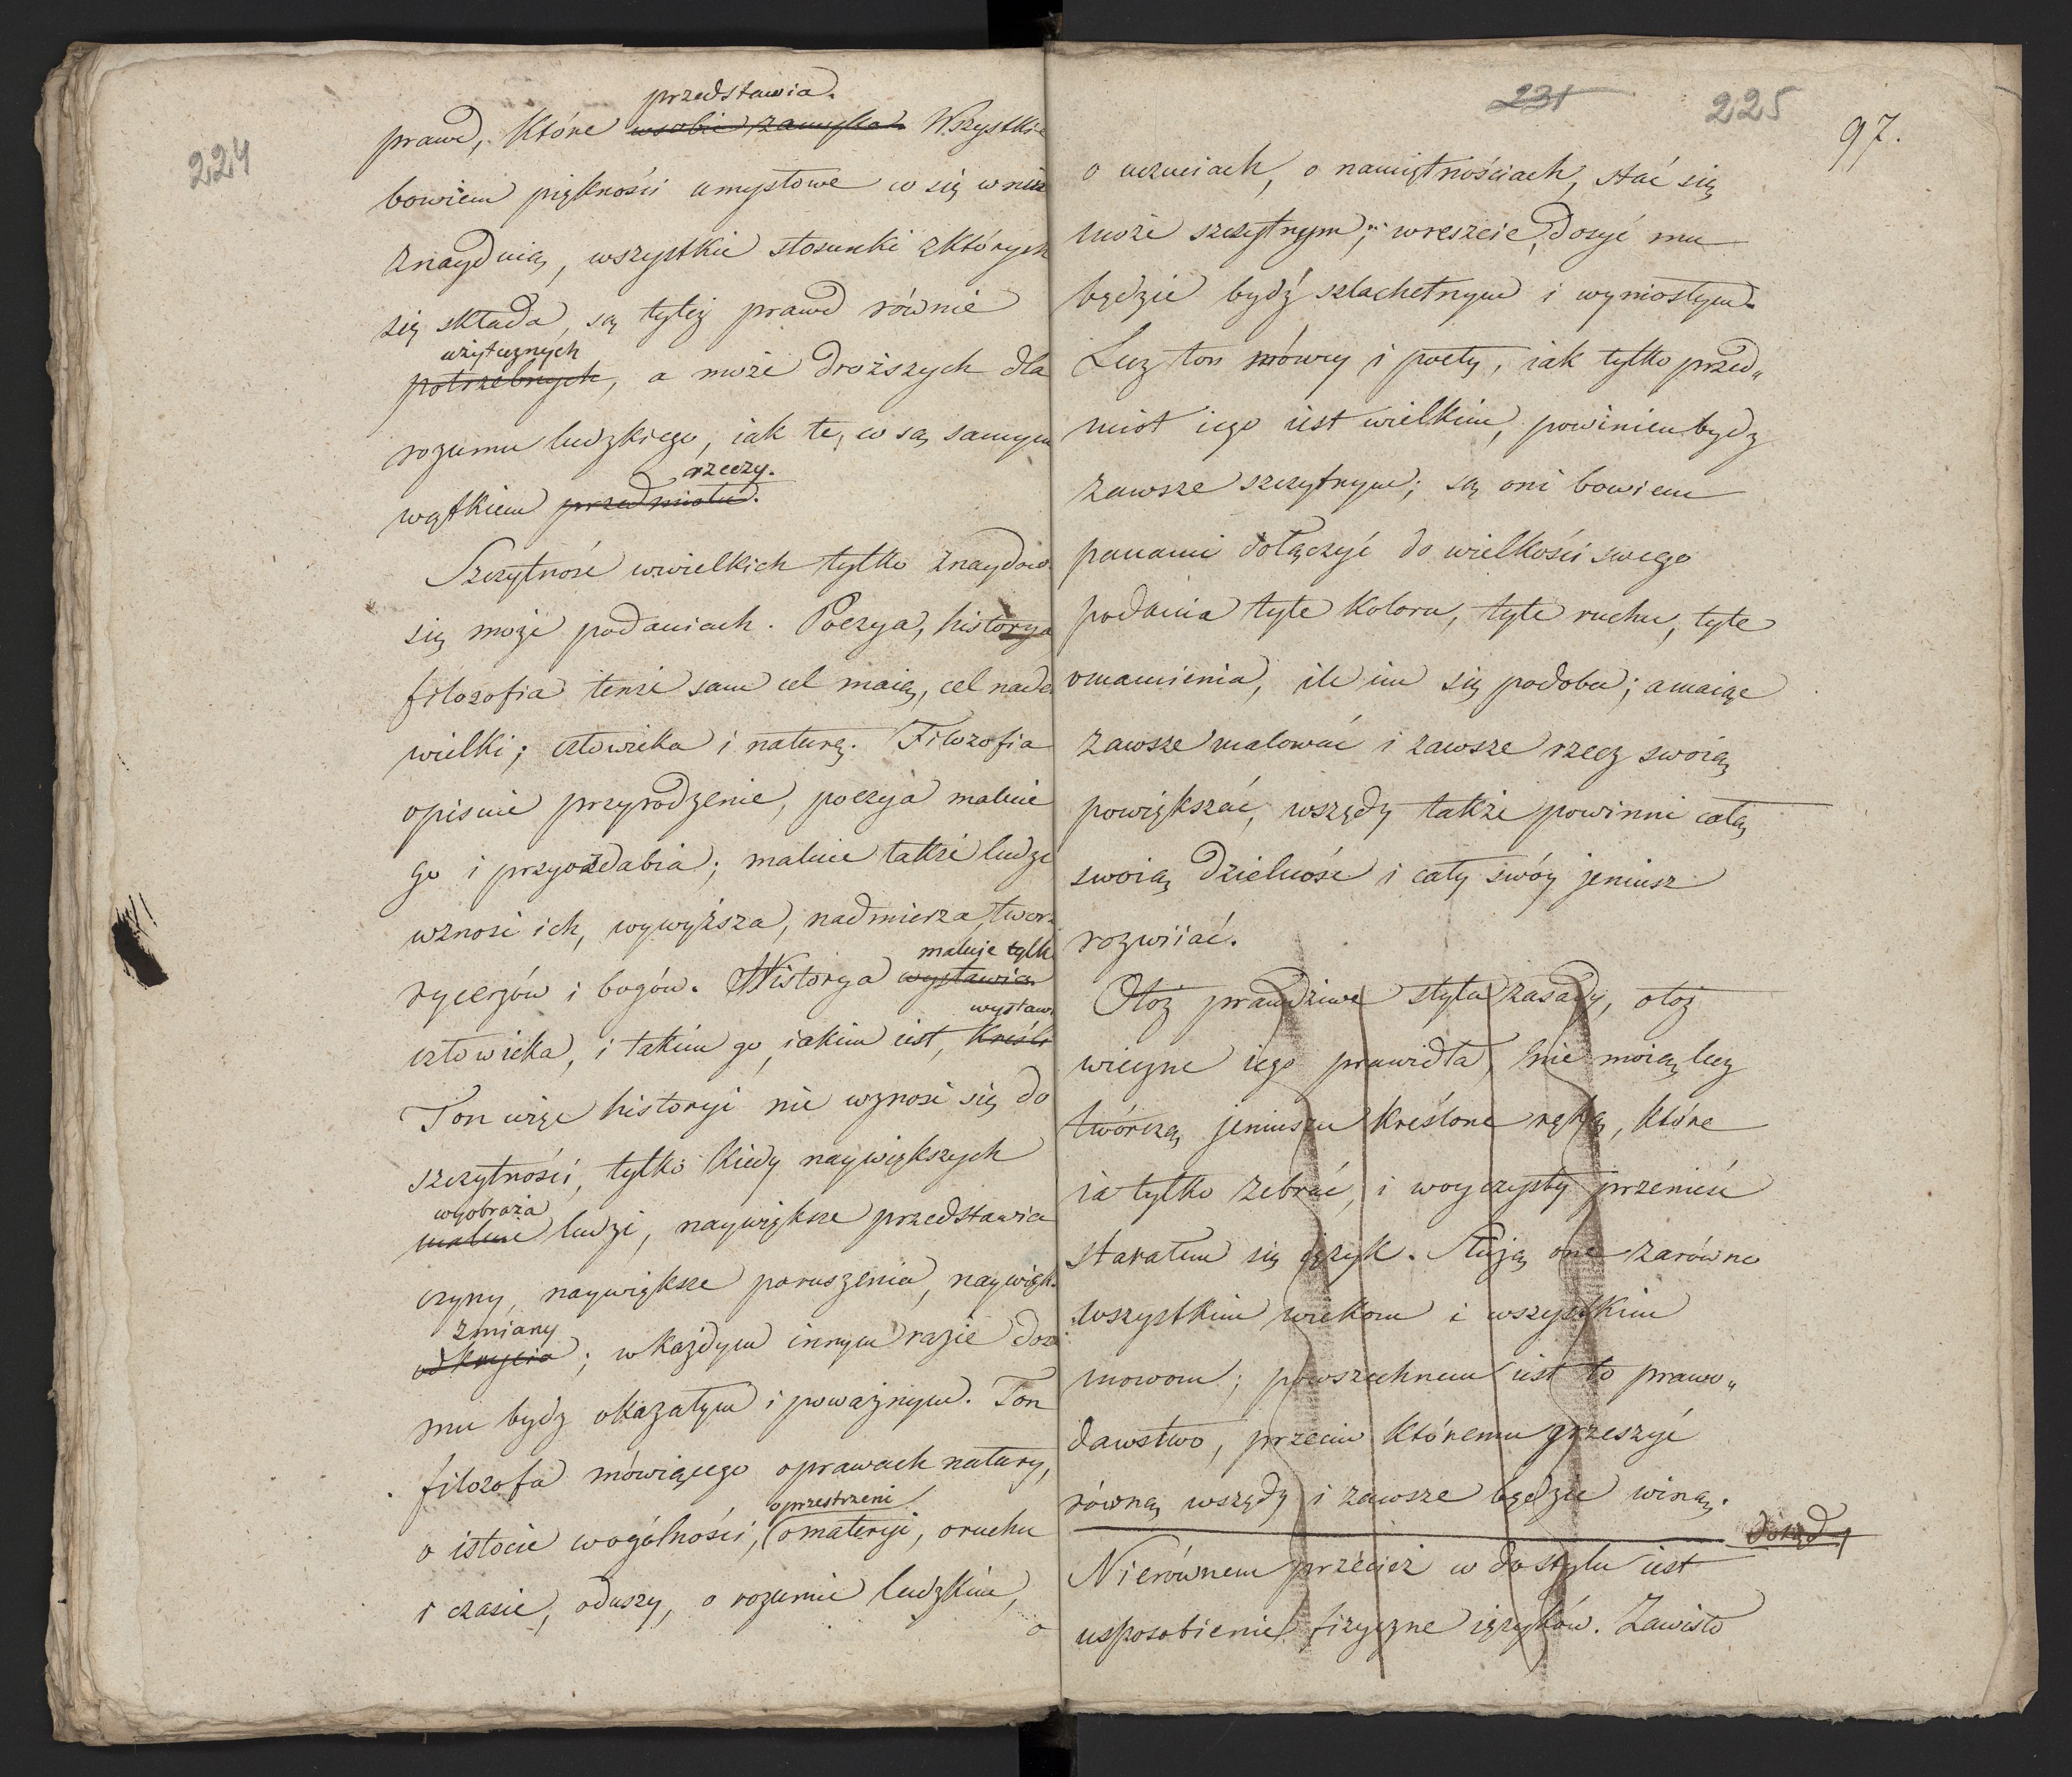 224
przedstawia.
prawd, które w sobie zamyka. Wszystkie
bowiem piękności umysłowe co się w nim
znayduią, wszystkie stosunki z których
się składa, są tyleż prawd równie
użytecznych
potrzebnych, a może droższych dla
rozumu ludzkiego, iak te, co są samym
rzeczy.
wątkiem przedmiotu.
Szczytność w wielkich tylko znaydow
się może podaniach. Poezya, historya
filozofia tenże sam cel maią, cel nader
wielki; człowieka i naturę. Filozofia
opisuie przyrodzenie, poezyia maluie
go i przyozdabia; maluie także ludzi
wznosi ich, wywyższa, nadmierza, twor
maluje tylk
rycerzów i bogów. Historya wystawia
wystaw
człowieka, i takim go, iakim iest, kreśli
Ton więc historyi nie wznosi się do
szczytności, tylko kiedy naywiększych
wyobraża
maluie ludzi, naywiększe przedstawia
czyny, naywiększe poruszenia, naywięk
zmiany
odkrycia; w każdym innym razie dosi
mu bydz okazałym i poważnym. Ton
filozofa mówiącego o prawach natury,
o przestrzeni
o istocie w ogólności, o materyi, o ruchu
i czasie, o duszy, o rozumie ludzkim,
o
231
225
97.
o uczuciach, o namiętnościach, stać się
może szczytnym; wreszcie, dosyć mu
będzie bydź szlachetnym i wyniosłym.
Lecz ton mówcy i poety, iak tylko przed„
miot iego iest wielkim, powinien bydz
zawsze szczytnym; są oni bowiem
panami dołączyć do wielkości swego
podania tyle koloru, tyle ruchu, tyle
omamienia, ile im się podoba; a maiąc
zawsze malować i zawsze rzecz swoią
powiększać, wszędy także powinni całą
swoią dzielność i cały swóy jeniusz
rozwiiać.
Otoż prawdziwe stylu zasady, otoż
wieczne iego prawidła, nie moią lecz
twórczą jeniuszu kreślone ręką, które
ia tylko zebrać, i w oyczysty przenieść
starałem się ięzyk. Służą one zarówno
wszystkim wiekom i wszystkim
mowom; powszechnem iest to prawo„
dawstwo, przeciw któremu grzeszyć
równą wszędy i zawsze będzie winą.
dotąd
Nierównem przecież w do stylu iest
usposobienie fizyczne ięzyków. Zawisło